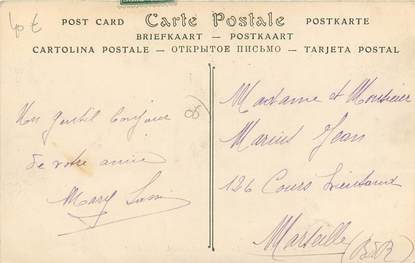 POST CARD Carte Postale POSTKARTE
BRIEFKAART - POSTKAART
CARTOLINA POSTALE - ОТКРЫТОЕ ПИСЬМО - TARJETA POSTAL
Un gentil bonjour
de votre amie
Mary
Madame et Monsieur
Marius Jean
126 Cours Lieutaud
Marseille (B d R)